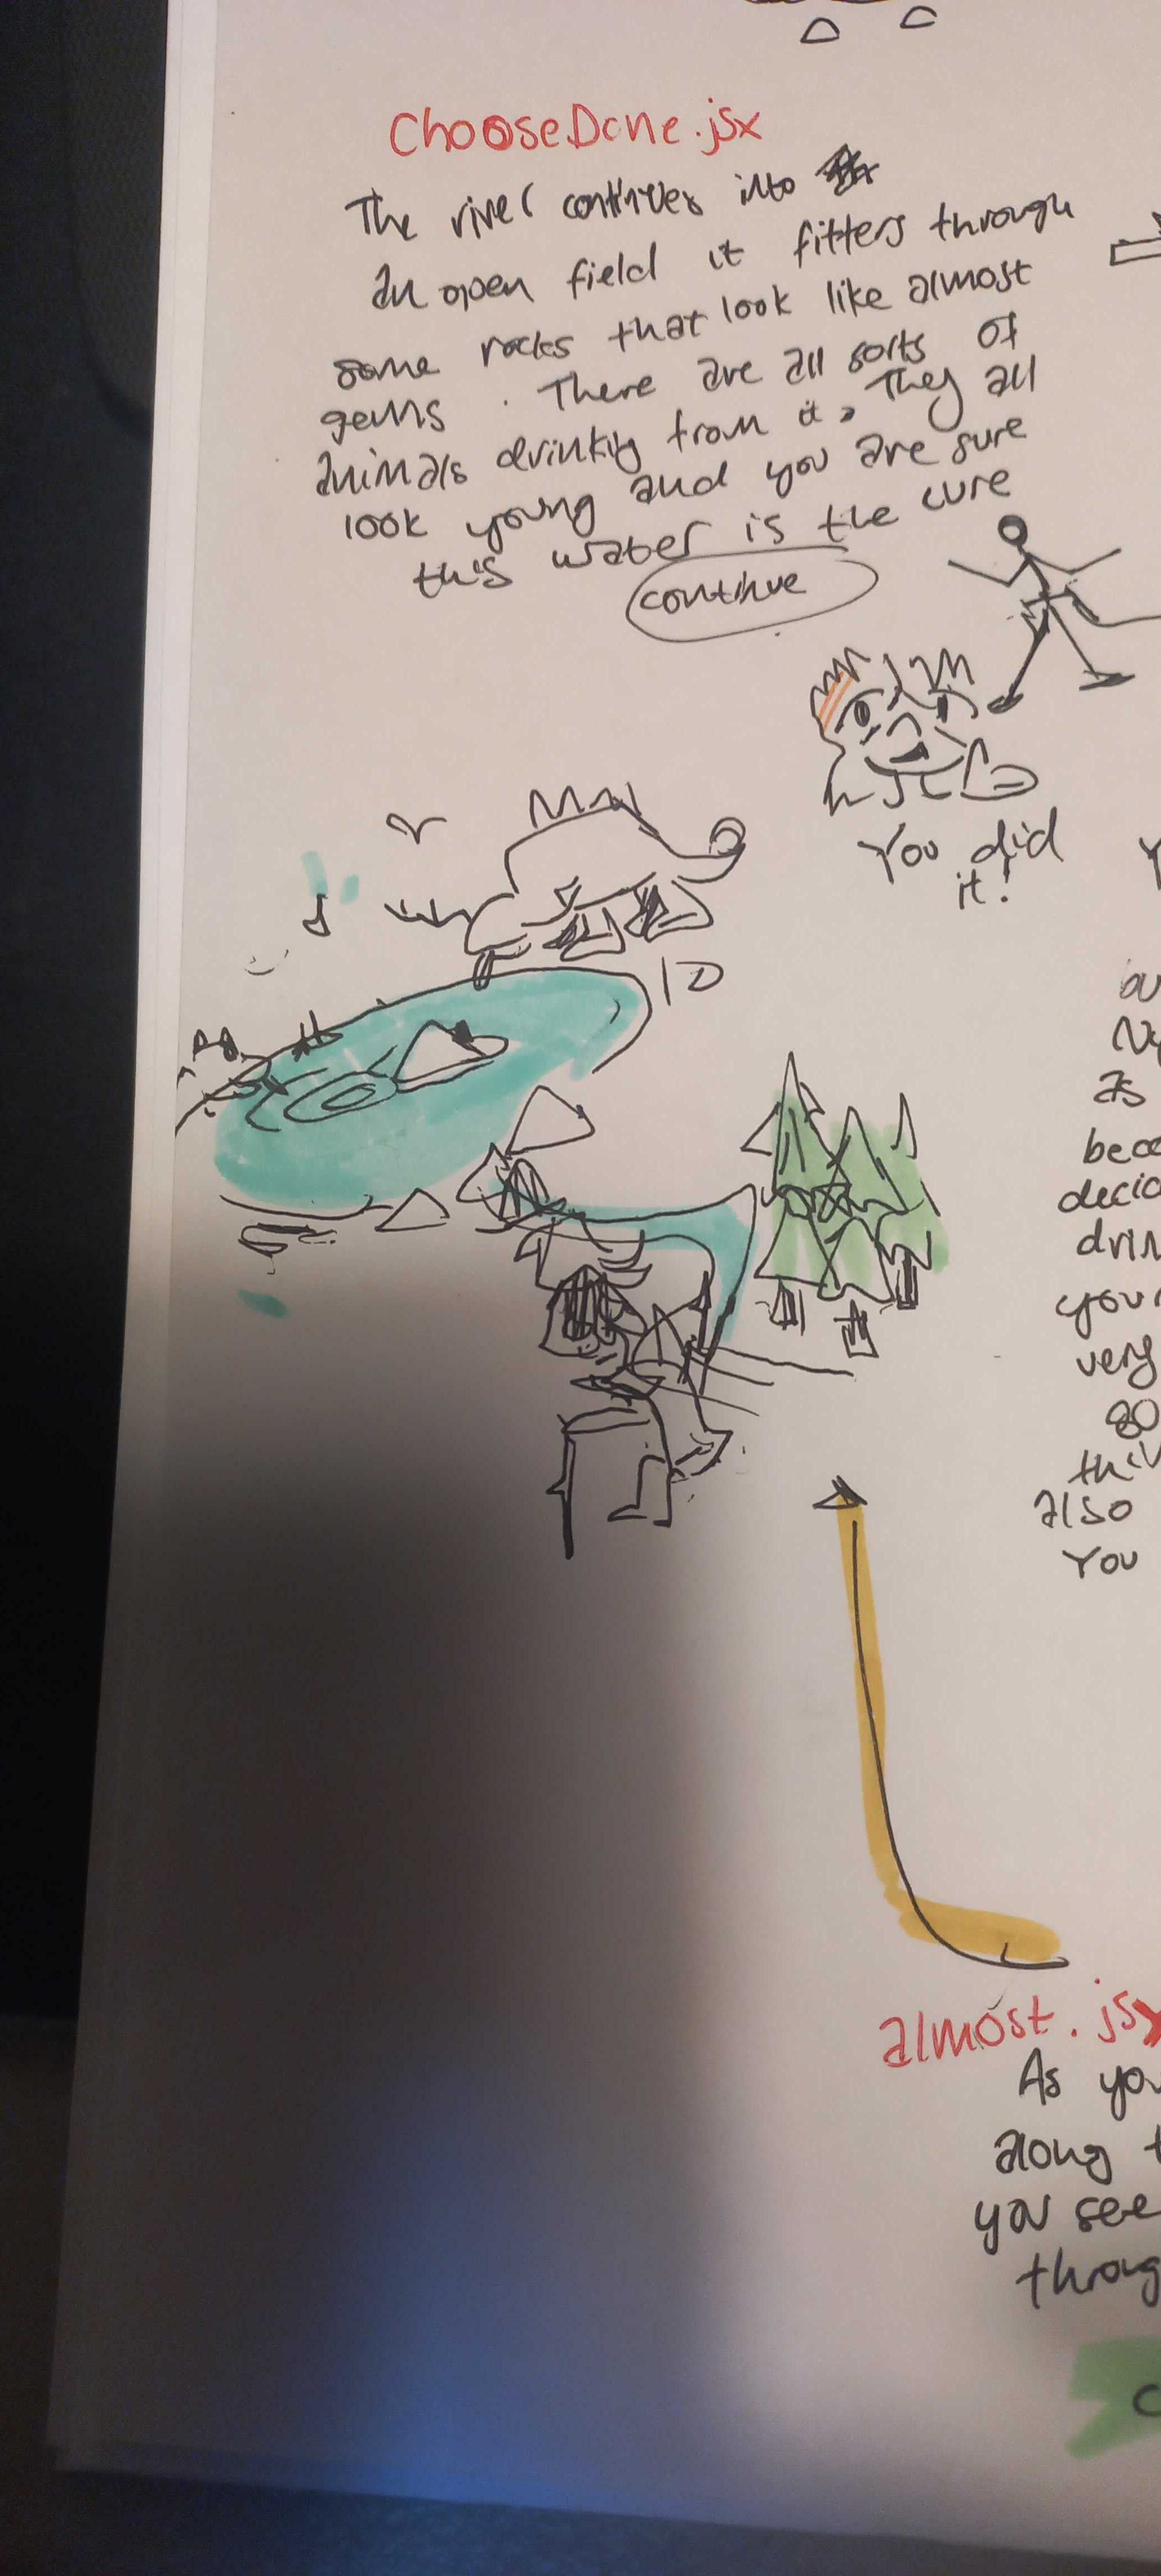 ChooseDone.jsx
The river continues into
an open field it fitters through
some rocks that look like almost
gems. There are all sorts of
animals drinking from it. They all
look young and you are sure
this water is the cure
continue
You did
it!
as
very
also
You
almost.jsx
As you
along
you see